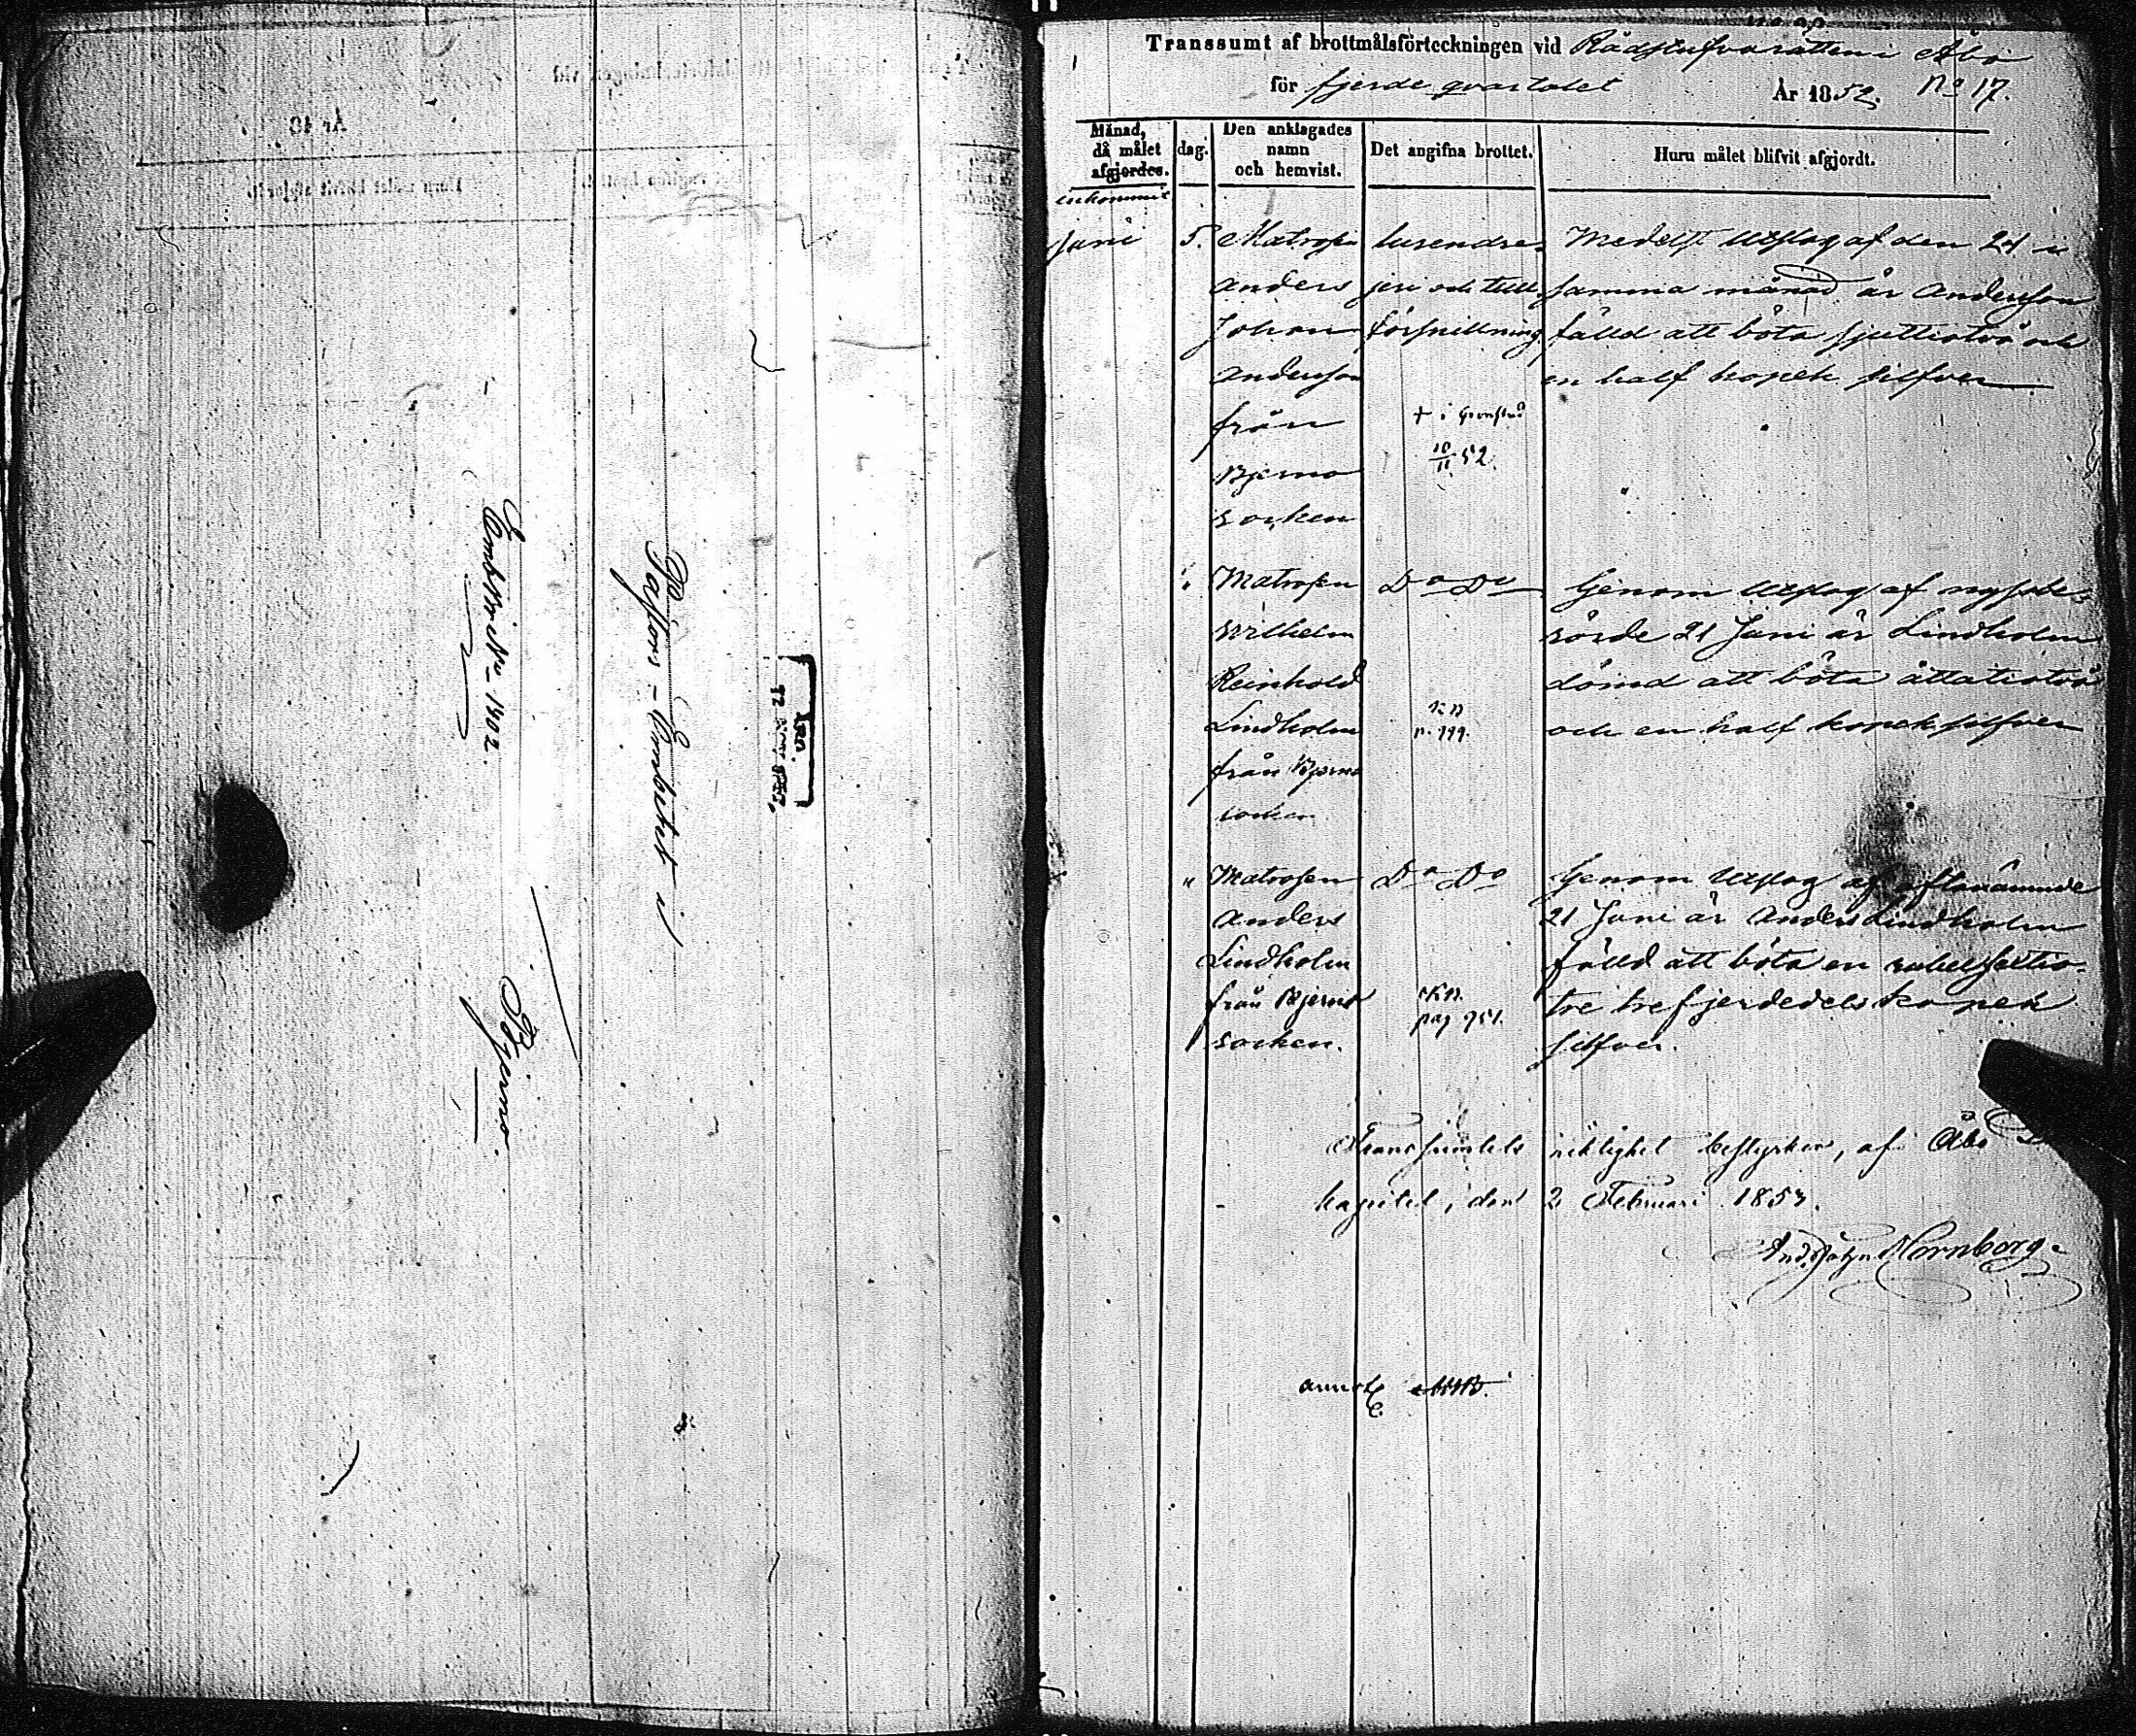 Embetr. No 1402.
Pastors-Embetet i
Bjerno.
ÅBO.
Transsumt af brottmålsförteckningen vid Rådstufvurätten i Åbo
för fjerde qvartalet År 1852. No 17.
Månad, då målet afgjordes. inkommit
dag.
Den anklagades namn och hemvist.
Det angifna brottet.
Huru målet blifvit afgjordt.
Juni 5. Matrosen lurendre- Medelst Utslag af den 21 i
Anders jeri och tull samma månad är Andersson
Johan försnillning fälld att böta sjuttiotvå och
Andersson en half kopek silfver
från + i Cronstad
Bjerno 10/11 52.
socken
" Matrosen Do Do Genom Utslag af nyssbe-
Wilhelm rörde 21 Juni är Lindholm
Reinhold dömd att böta åttatiotvå
Lindholm KB p. 199. och en half kopek silfver
från Bjerno
socken
" Matrosen Do Do Genom Utslag af oftanämnde
Anders 21 Juni är Anders Lindholm
Lindholm fälld att böta en rubel sextio-
från Bjerno KB. tre trefjerdedels kopek
socken. pag 951. silfver.
Transsumtets riktighet bestyrker, af Åbo
kapitel, den 2 Februari 1853.
And. Joh. Hornborg.